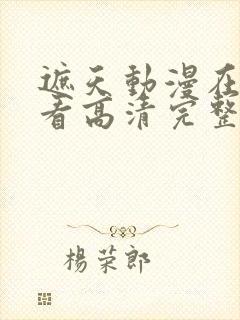 遮天動漫在
看高清完整
楊荣郎